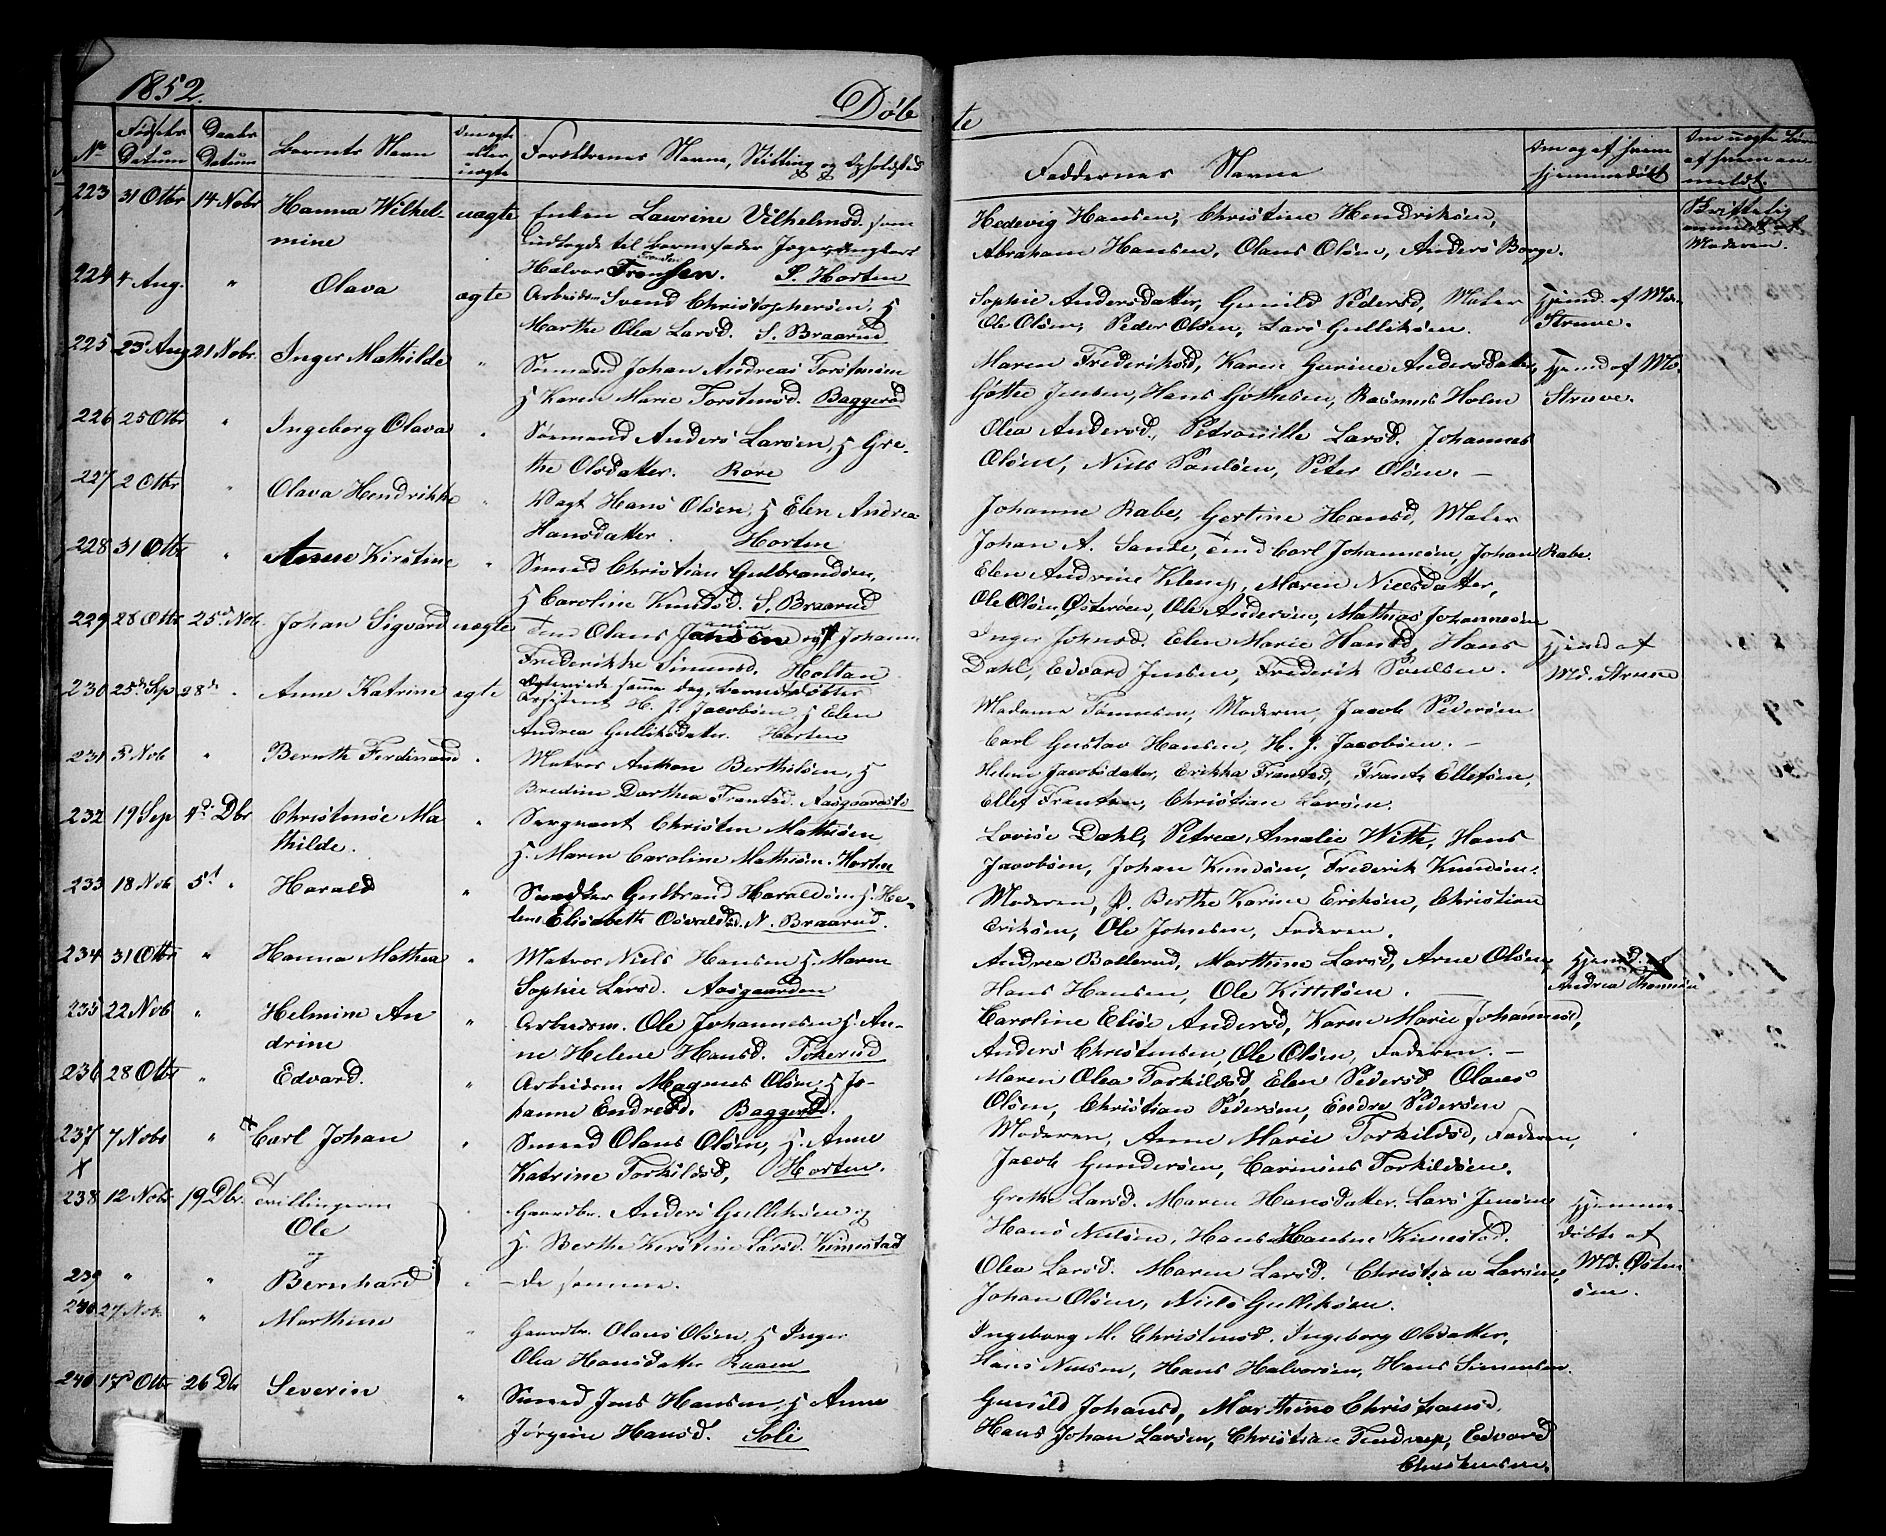 1852.
Døbte
No
Fødsels Datum
Daabs Datum
Barnets Navn
Om ægte eller uægte
Forældrenes Navne, Stilling og Opholdsted
Faddernes Navne
Om og af hvem hjemmedøbt
Om uægte Barn af hvem anmeldt.
223 31 Otbr 14 Nobr Hanna Wilhel- uægte Enken Laurine Vilhelmsd. som
mine udlagde til barnefader Jæger
Halvor Fronsen. S. Horten
Hedevig Hansen, Christine Hendriksen,
Abraham Hansen, Olaus Olsen, Anders Borge.
Skriftelig anmeldt af Moderen.
224 4 Aug. " Olava ægte Arbeidsm Svend Christophersen, H
Marthe Olea Larsd. S. Braarud
Sophie Andersdatter, Gunild Pedersd, Maler
Ole Olsen, Peder Olsen, Lars Gulliksen.
Hjemd. af Md. Struve.
225 23 Aug 21 Nobr. Inger Mathilde " Sømand Johan Andreas Torstensen
H Karen Marie Torstensd. Baggerød
Maren Frederiksd, Karen Gurine Andersdatter,
Gøttie Jensen, Hans Gøthesen, Rasmus Holm
Hjemd af Md. Struve.
226 25 Otbr " Ingeborg Olava " Sømand Anders Larsen, H Gre-
the Olsdatter. Røre
Olea Andersd., Petronille Larsd. Johannes
Olsen, Niels Paulsen, Peter Olsen. —
227 2 Otbr " Olava Hendrikke " Vagt Hans Olsen, H Elen Andrea
Hansdatter. Horten
Johanne Rabe, Gertine Hansd, Maler
Johan A. Sande, Tmd Carl Johannesen, Johan Rabe.
228 31 Otbr " Anne Kirstine " Smed Christian Gulbrandsen,
H Caroline Knudsd. S. Braarud
Elen Andrine Klemp, Maren Nielsdatter,
Ole Olsen Østerøen, Ole Andersen, Mathias Johannesen
229 28 Otbr 25d Nob. Johan Sigvard uægte Tmd Olaus Jansen og P Johanne
Frederikke Simensd. Holtan
Inger Johnsd. Elen Marie Hansd, Hans
Dahl, Edvard Jensen, Frederik Paulsen.
Hjemd af Md. Struve
230 25d Sep 28d " Anne Katrine ægte
Assistent H. J. Jacobsen H Elen
Andrea Gulliksdatter. Horten
Madame Tønnesen, Moderen, Jacob Pedersen
Carl Gustav Hansen, H. J. Jacobsen. —
231 5 Nob " Bernth Ferdinand " Matros Anthon Berthelsen, H
Bredine Dorthea Frantsd. Aasgaardsts
Helene Jacobsdatter, Erikka Frantsd, Frants Ellefsen,
Ellef Frantsen, Christian Larsen.
232 19 Sep 4d Dbr Christense Ma " Sergeant Christen Mathisen
thilde. H. Maren Caroline Mathisen. Horten
Lovise Dahl, Petrea Amalie With, Hans
Jacobsen, Johan Knudsen, Frederik Knudsen.
233 18 Nob 5d " Harald " Snedker Gulbrand Haraldsen, H. He-
lene Elisabeth Osvaldsd. N. Braarud.
Moderen, P. Berthe Karine Eriksen, Christian
Eriksen, Ole Johnsen, Faderen.
234 31 Otbr " Hanna Mathea " Matros Niels Hansen H. Maren
Sophie Larsd. Aasgaarden
Andrea Bollerud, Marthine Larsd, Arne Olsen,
Hans Hansen, Ole Kittelsen.
Hjemd. af Andrea
235 22 Nob " Helmine An " Arbeidsm. Ole Johannesen H. An-
drine ne Helene Hansd. Tokerud
Caroline Elise Andersd, Karen Marie Johannesd,
Anders Christensen, Ole Olsen, Faderen. —
236 28 Otbr " Edvard. " Arbeidsm Magnus Olsen H Jo-
hanne Endresd. Baggerød.
Maren Olea Torkildsd, Elen Pedersd, Olaus
Olsen, Christian Pedersen, Endre Pedersen
237 7 Nobr " Carl Johan " Smed Olaus Olsen, H. Anne
Katrine Torkildsd, Horten.
Moderen, Anne Marie Torkildsd, Faderen,
Jacob Gundersen, Carinius Torkildsen.
238 12 Nobr 19 Dbr. Tvillingerne " Gaardbr. Anders Gulliksen og
Ole H. Berthe Kirstine Larsd. Kimestad
og
Grethe Larsd. Maren Hansdatter. Lars Jensen
Hans Nielsen, Hans Hansen Kimestad.
Hjemme-
døbte af
Md. Østen
sen.
239 " " Bernhard " — de samme.
Olea Larsd. Maren Larsd. Christian Larsen,
Johan Olsen, Niels Gulliksen.
240 27 Nob. " Marthine " Gaardbr. Olaus Olsen, H Inger
Olea Hansdatter Raaen
Ingeborg M. Christensd. Ingeborg Olsdatter,
Hans Nielsen, Hans Halvorsen, Hans Simensen.
240 17d Otbr 26 Dbr Severin " Smed Jens Hansen, H Anne
Jørgine Hansd. Soli
Gunild Johansd, Marthine Christiansd.
Hans Johan Larsen, Christian Tendrup, Edvard
Christensen.